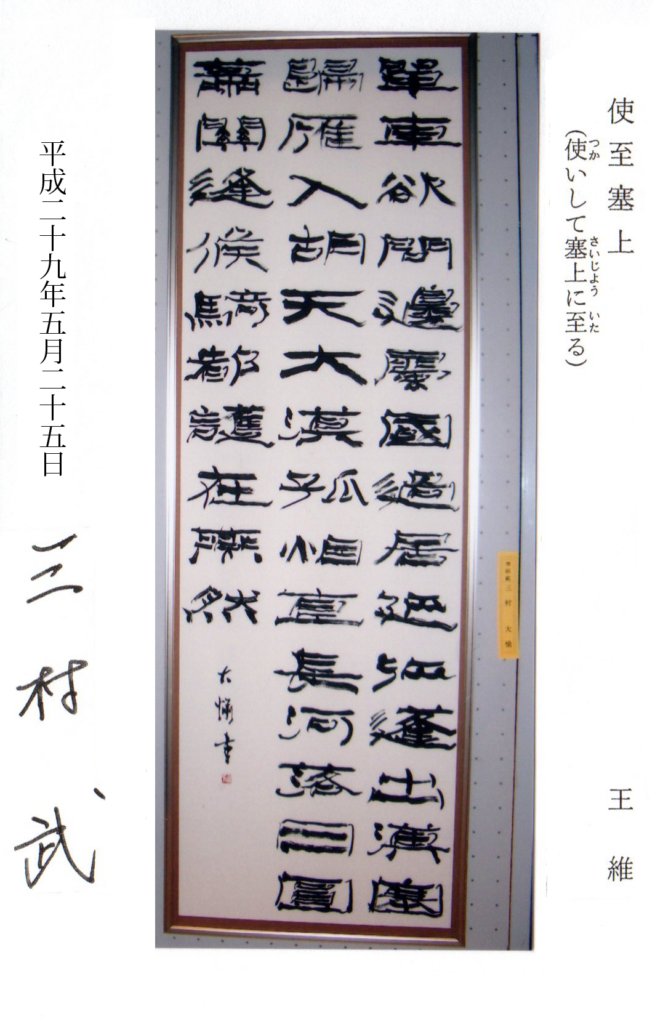 使至塞上
王維
つか さいじよう いた
(使いして塞上に至る)
三村 大
單車欲問邊屬國過居延征蓬出漢塞
歸雁入胡天大漠孤烟直長河落日圓
蕭關逢候騎都護在燕然
大 書
平成二十九年五月二十五日
三村武